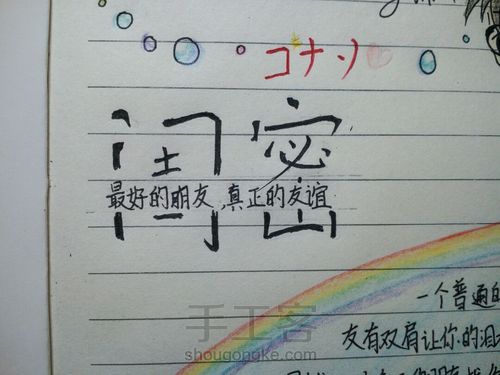 コナン
闺密
最好的朋友,真正的友谊
一个普通的
友有双肩让你的泪
手工客
shougongke.com